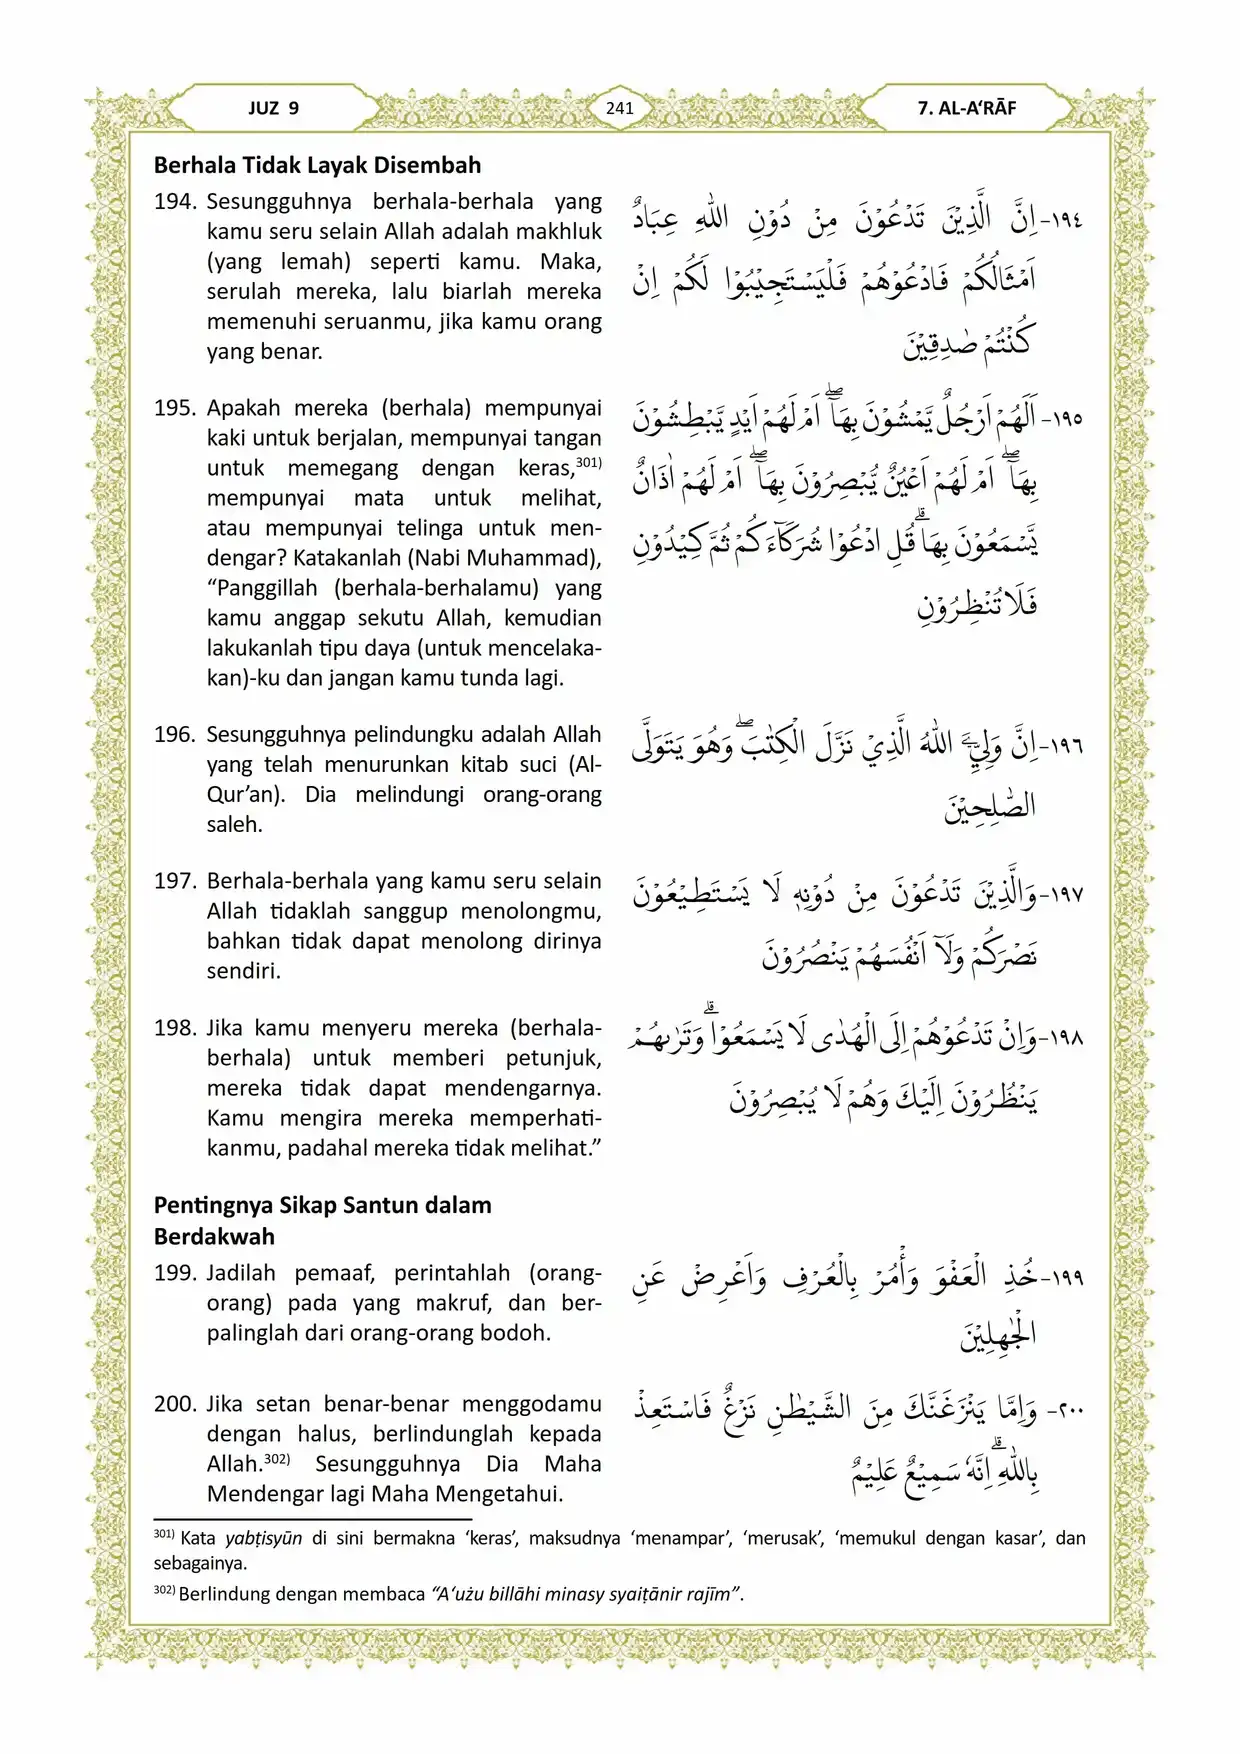 JUZ 9
241
7. AL-A‘RĀF
Berhala Tidak Layak Disembah
194. Sesungguhnya berhala-berhala yang
kamu seru selain Allah adalah makhluk
(yang lemah) seperti kamu. Maka,
serulah mereka, lalu biarlah mereka
memenuhi seruanmu, jika kamu orang
yang benar.
١٩٤- اِنَّ الَّذِيْنَ تَدْعُوْنَ مِنْ دُوْنِ اللّٰهِ عِبَادٌ
اَمْثَالُكُمْ فَادْعُوْهُمْ فَلْيَسْتَجِيْبُوْا لَكُمْ اِنْ
كُنْتُمْ صٰدِقِيْنَ
195. Apakah mereka (berhala) mempunyai
kaki untuk berjalan, mempunyai tangan
untuk memegang dengan keras,301)
mempunyai mata untuk melihat,
atau mempunyai telinga untuk men-
dengar? Katakanlah (Nabi Muhammad),
“Panggillah (berhala-berhalamu) yang
kamu anggap sekutu Allah, kemudian
lakukanlah tipu daya (untuk mencelaka-
kan)-ku dan jangan kamu tunda lagi.
١٩٥- اَلَهُمْ اَرْجُلٌ يَّمْشُوْنَ بِهَآ ۖ اَمْ لَهُمْ اَيْدٍ يَّبْطِشُوْنَ
بِهَآ ۖ اَمْ لَهُمْ اَعْيُنٌ يُّبْصِرُوْنَ بِهَآ ۖ اَمْ لَهُمْ اٰذَانٌ
يَّسْمَعُوْنَ بِهَاۗ قُلِ ادْعُوْا شُرَكَاۤءَكُمْ ثُمَّ كِيْدُوْنِ
فَلَا تُنْظِرُوْنِ
196. Sesungguhnya pelindungku adalah Allah
yang telah menurunkan kitab suci (Al-
Qur’an). Dia melindungi orang-orang
saleh.
١٩٦- اِنَّ وَلِيِّ َۧ اللّٰهُ الَّذِيْ نَزَّلَ الْكِتٰبَۖ وَهُوَ يَتَوَلَّى
الصّٰلِحِيْنَ
197. Berhala-berhala yang kamu seru selain
Allah tidaklah sanggup menolongmu,
bahkan tidak dapat menolong dirinya
sendiri.
١٩٧- وَالَّذِيْنَ تَدْعُوْنَ مِنْ دُوْنِهٖ لَا يَسْتَطِيْعُوْنَ
نَصْرَكُمْ وَلَآ اَنْفُسَهُمْ يَنْصُرُوْنَ
198. Jika kamu menyeru mereka (berhala-
berhala) untuk memberi petunjuk,
mereka tidak dapat mendengarnya.
Kamu mengira mereka memperhati-
kanmu, padahal mereka tidak melihat.”
١٩٨- وَاِنْ تَدْعُوْهُمْ اِلَى الْهُدٰى لَا يَسْمَعُوْاۗ وَتَرٰىهُمْ
يَنْظُرُوْنَ اِلَيْكَ وَهُمْ لَا يُبْصِرُوْنَ
Pentingnya Sikap Santun dalam
Berdakwah
199. Jadilah pemaaf, perintahlah (orang-
orang) pada yang makruf, dan ber-
palinglah dari orang-orang bodoh.
١٩٩- خُذِ الْعَفْوَ وَأْمُرْ بِالْعُرْفِ وَاَعْرِضْ عَنِ
الْجٰهِلِيْنَ
200. Jika setan benar-benar menggodamu
dengan halus, berlindunglah kepada
Allah.302) Sesungguhnya Dia Maha
Mendengar lagi Maha Mengetahui.
٢٠٠- وَاِمَّا يَنْزَغَنَّكَ مِنَ الشَّيْطٰنِ نَزْغٌ فَاسْتَعِذْ
بِاللّٰهِ ۗاِنَّهٗ سَمِيْعٌ عَلِيْمٌ
301) Kata yabṭisyūn di sini bermakna ‘keras’, maksudnya ‘menampar’, ‘merusak’, ‘memukul dengan kasar’, dan
sebagainya.
302) Berlindung dengan membaca “A‘użu billāhi minasy syaiṭānir rajīm”.